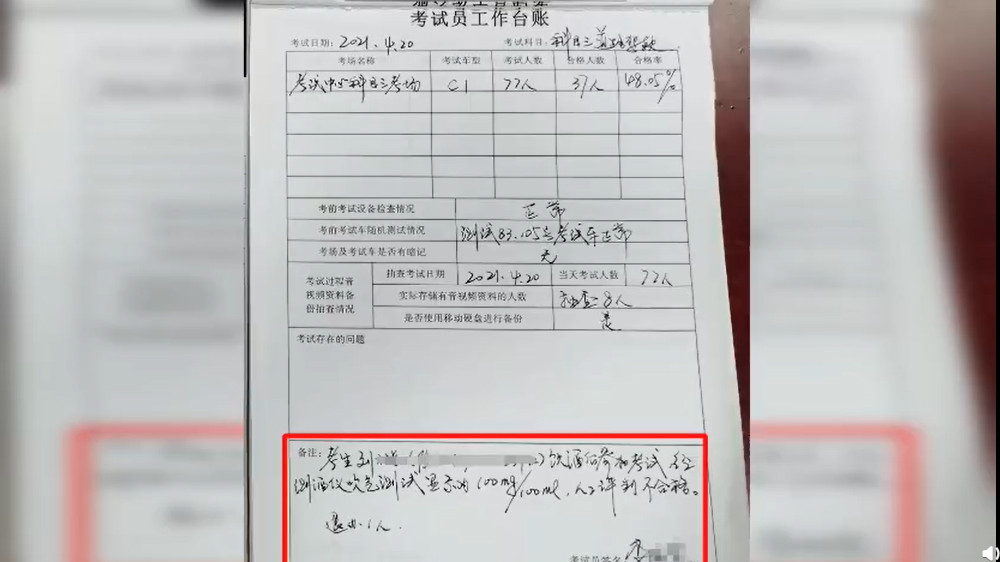 考试员工作台账
考试日期：2021.4.20 考试科目：科目三道路驾驶
考场名称 考试车型 考试人数 合格人数 合格率
考试中心科目三考场 C1 77人 37人 48.05%
考前考试设备检查情况 正常
考前考试车随机测试情况 测试83.105号考试车正常
考场及考试车是否有暗记 无
考试过程音视频资料备份抽查情况 抽查考试日期 2021.4.20 当天考试人数 77人
实际存储有音视频资料的人数 抽查8人
是否使用移动硬盘进行备份 是
考试存在的问题
备注：考生刘 饮酒后参加考试，经
测酒仪吹气测试显示为100ml/100ml，人工评判不合格。
退办1人.
考试员签名 李